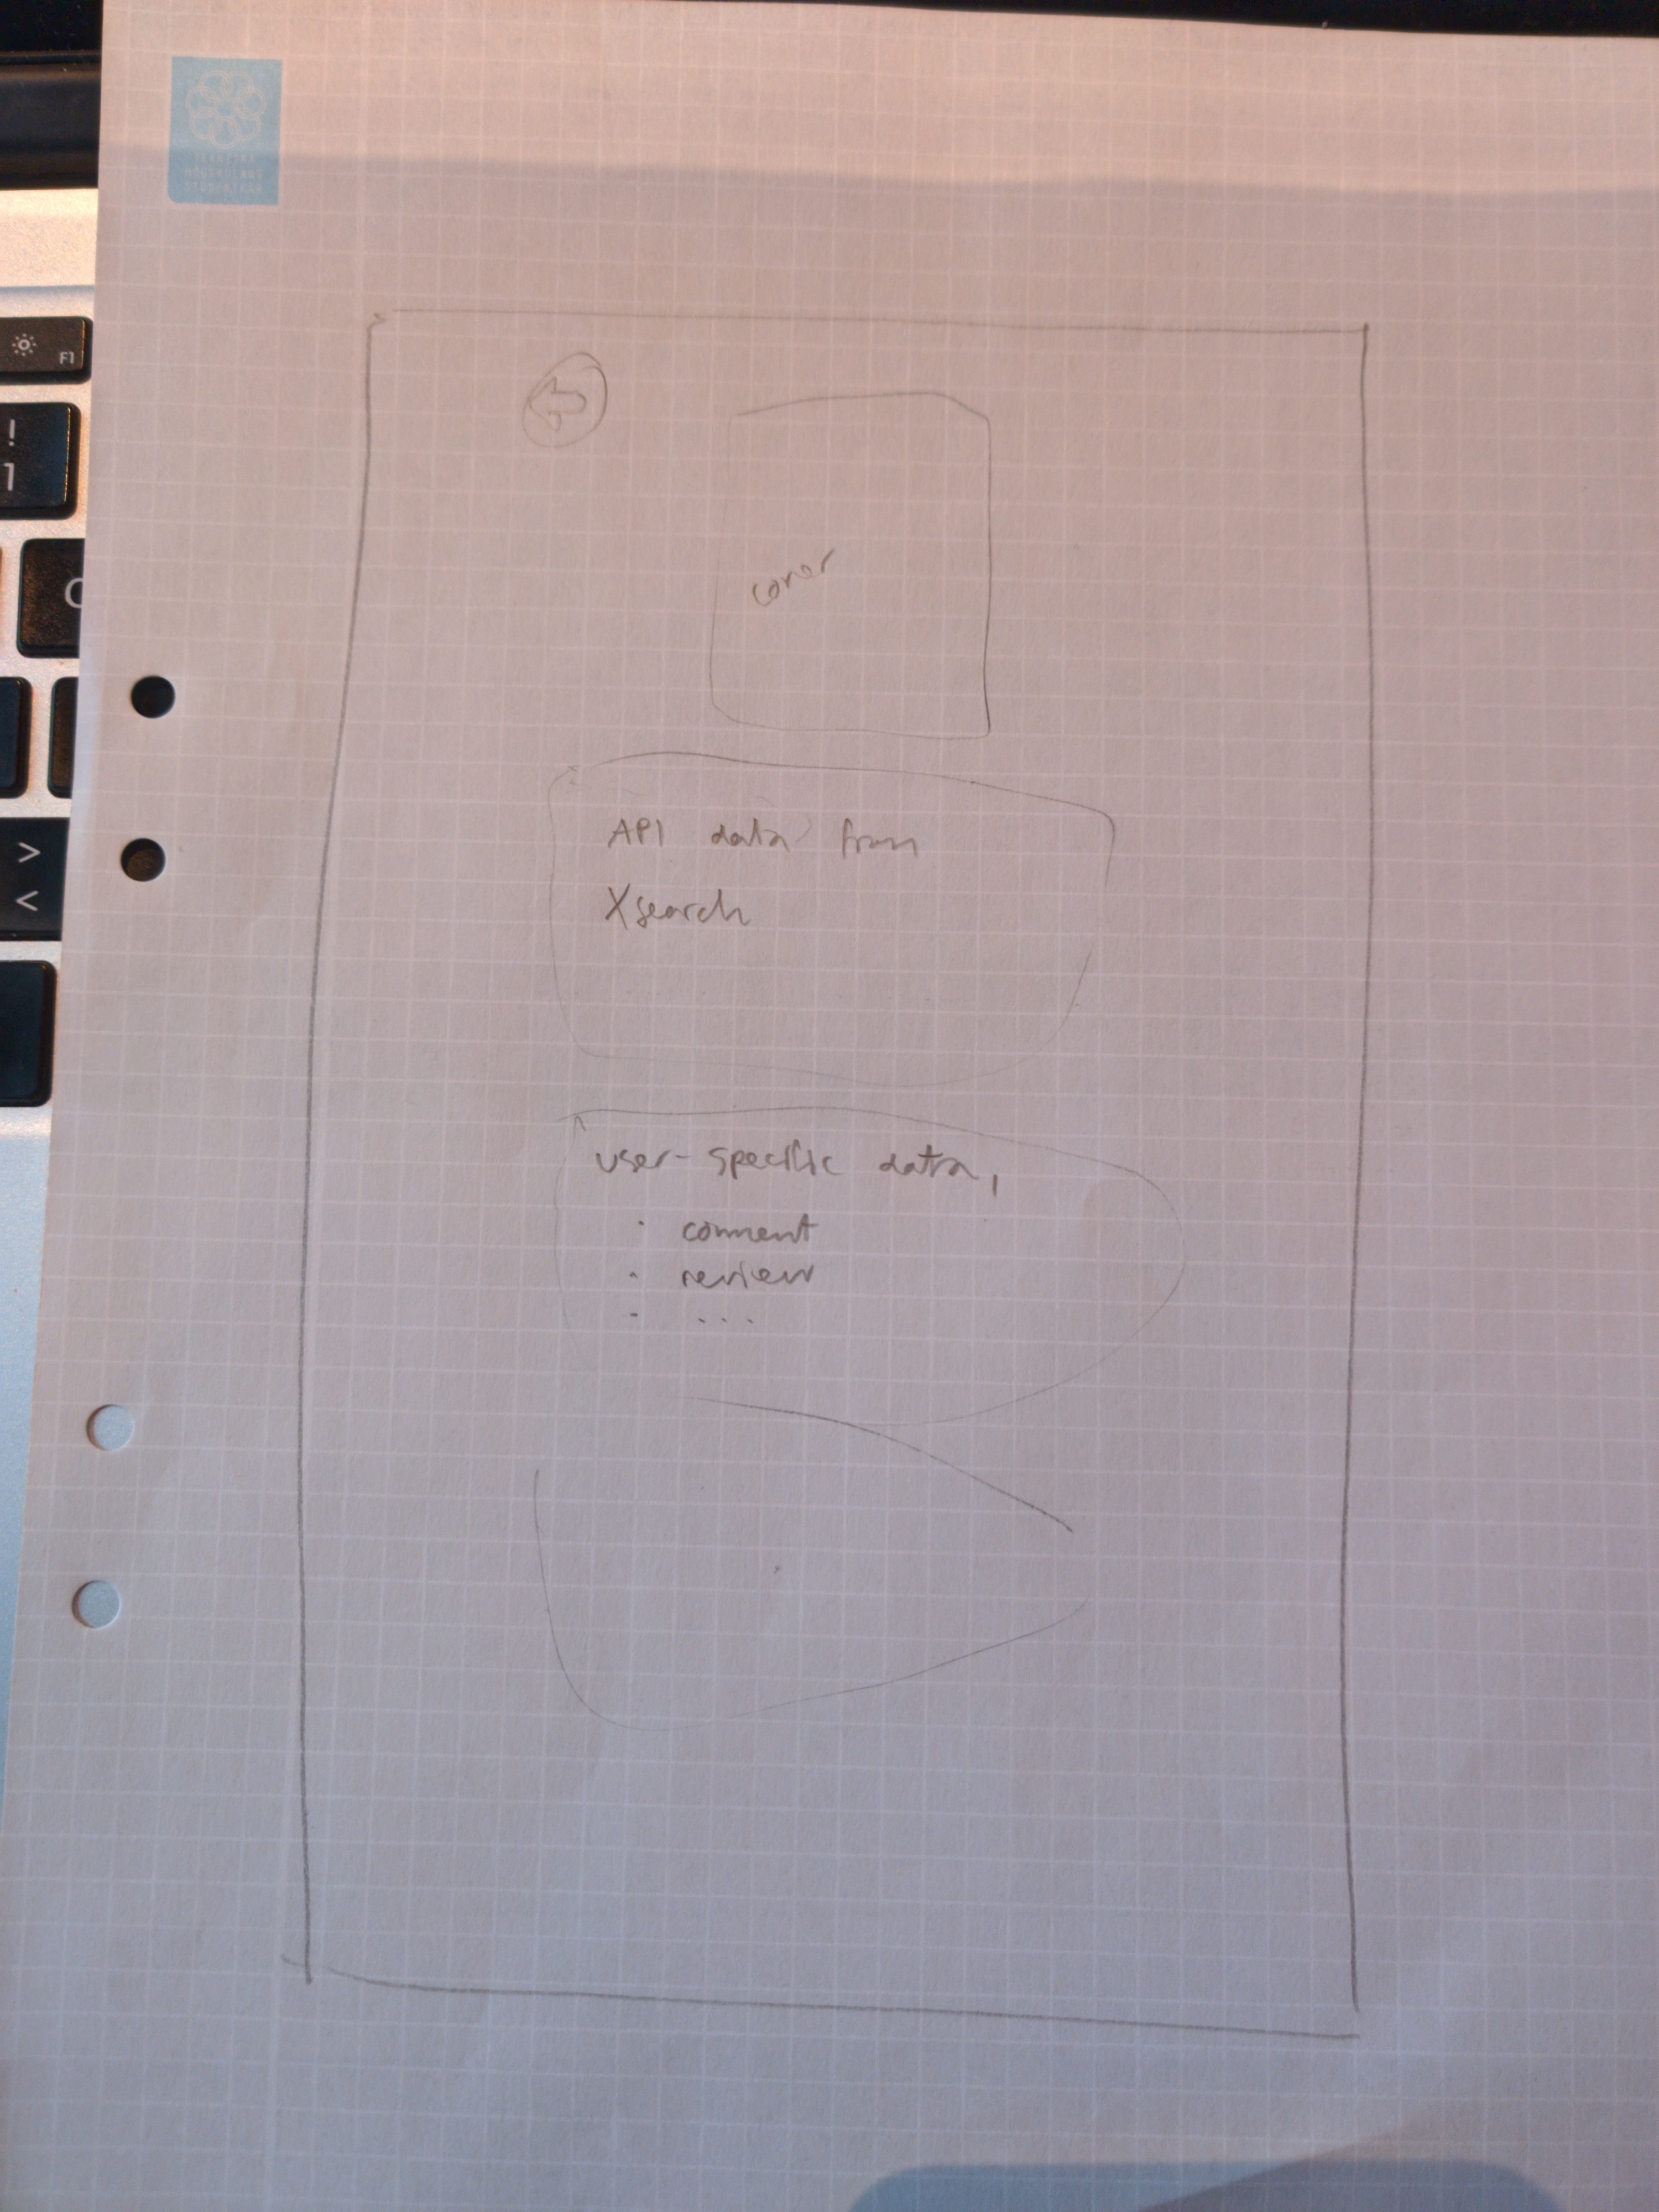 TEKNISKA
HÖGSKOLANS
STUDENTKÅR
F1
!
1
>
<
cover
API data from
Xsearch
user-specific data,
· comment
· review
· ...